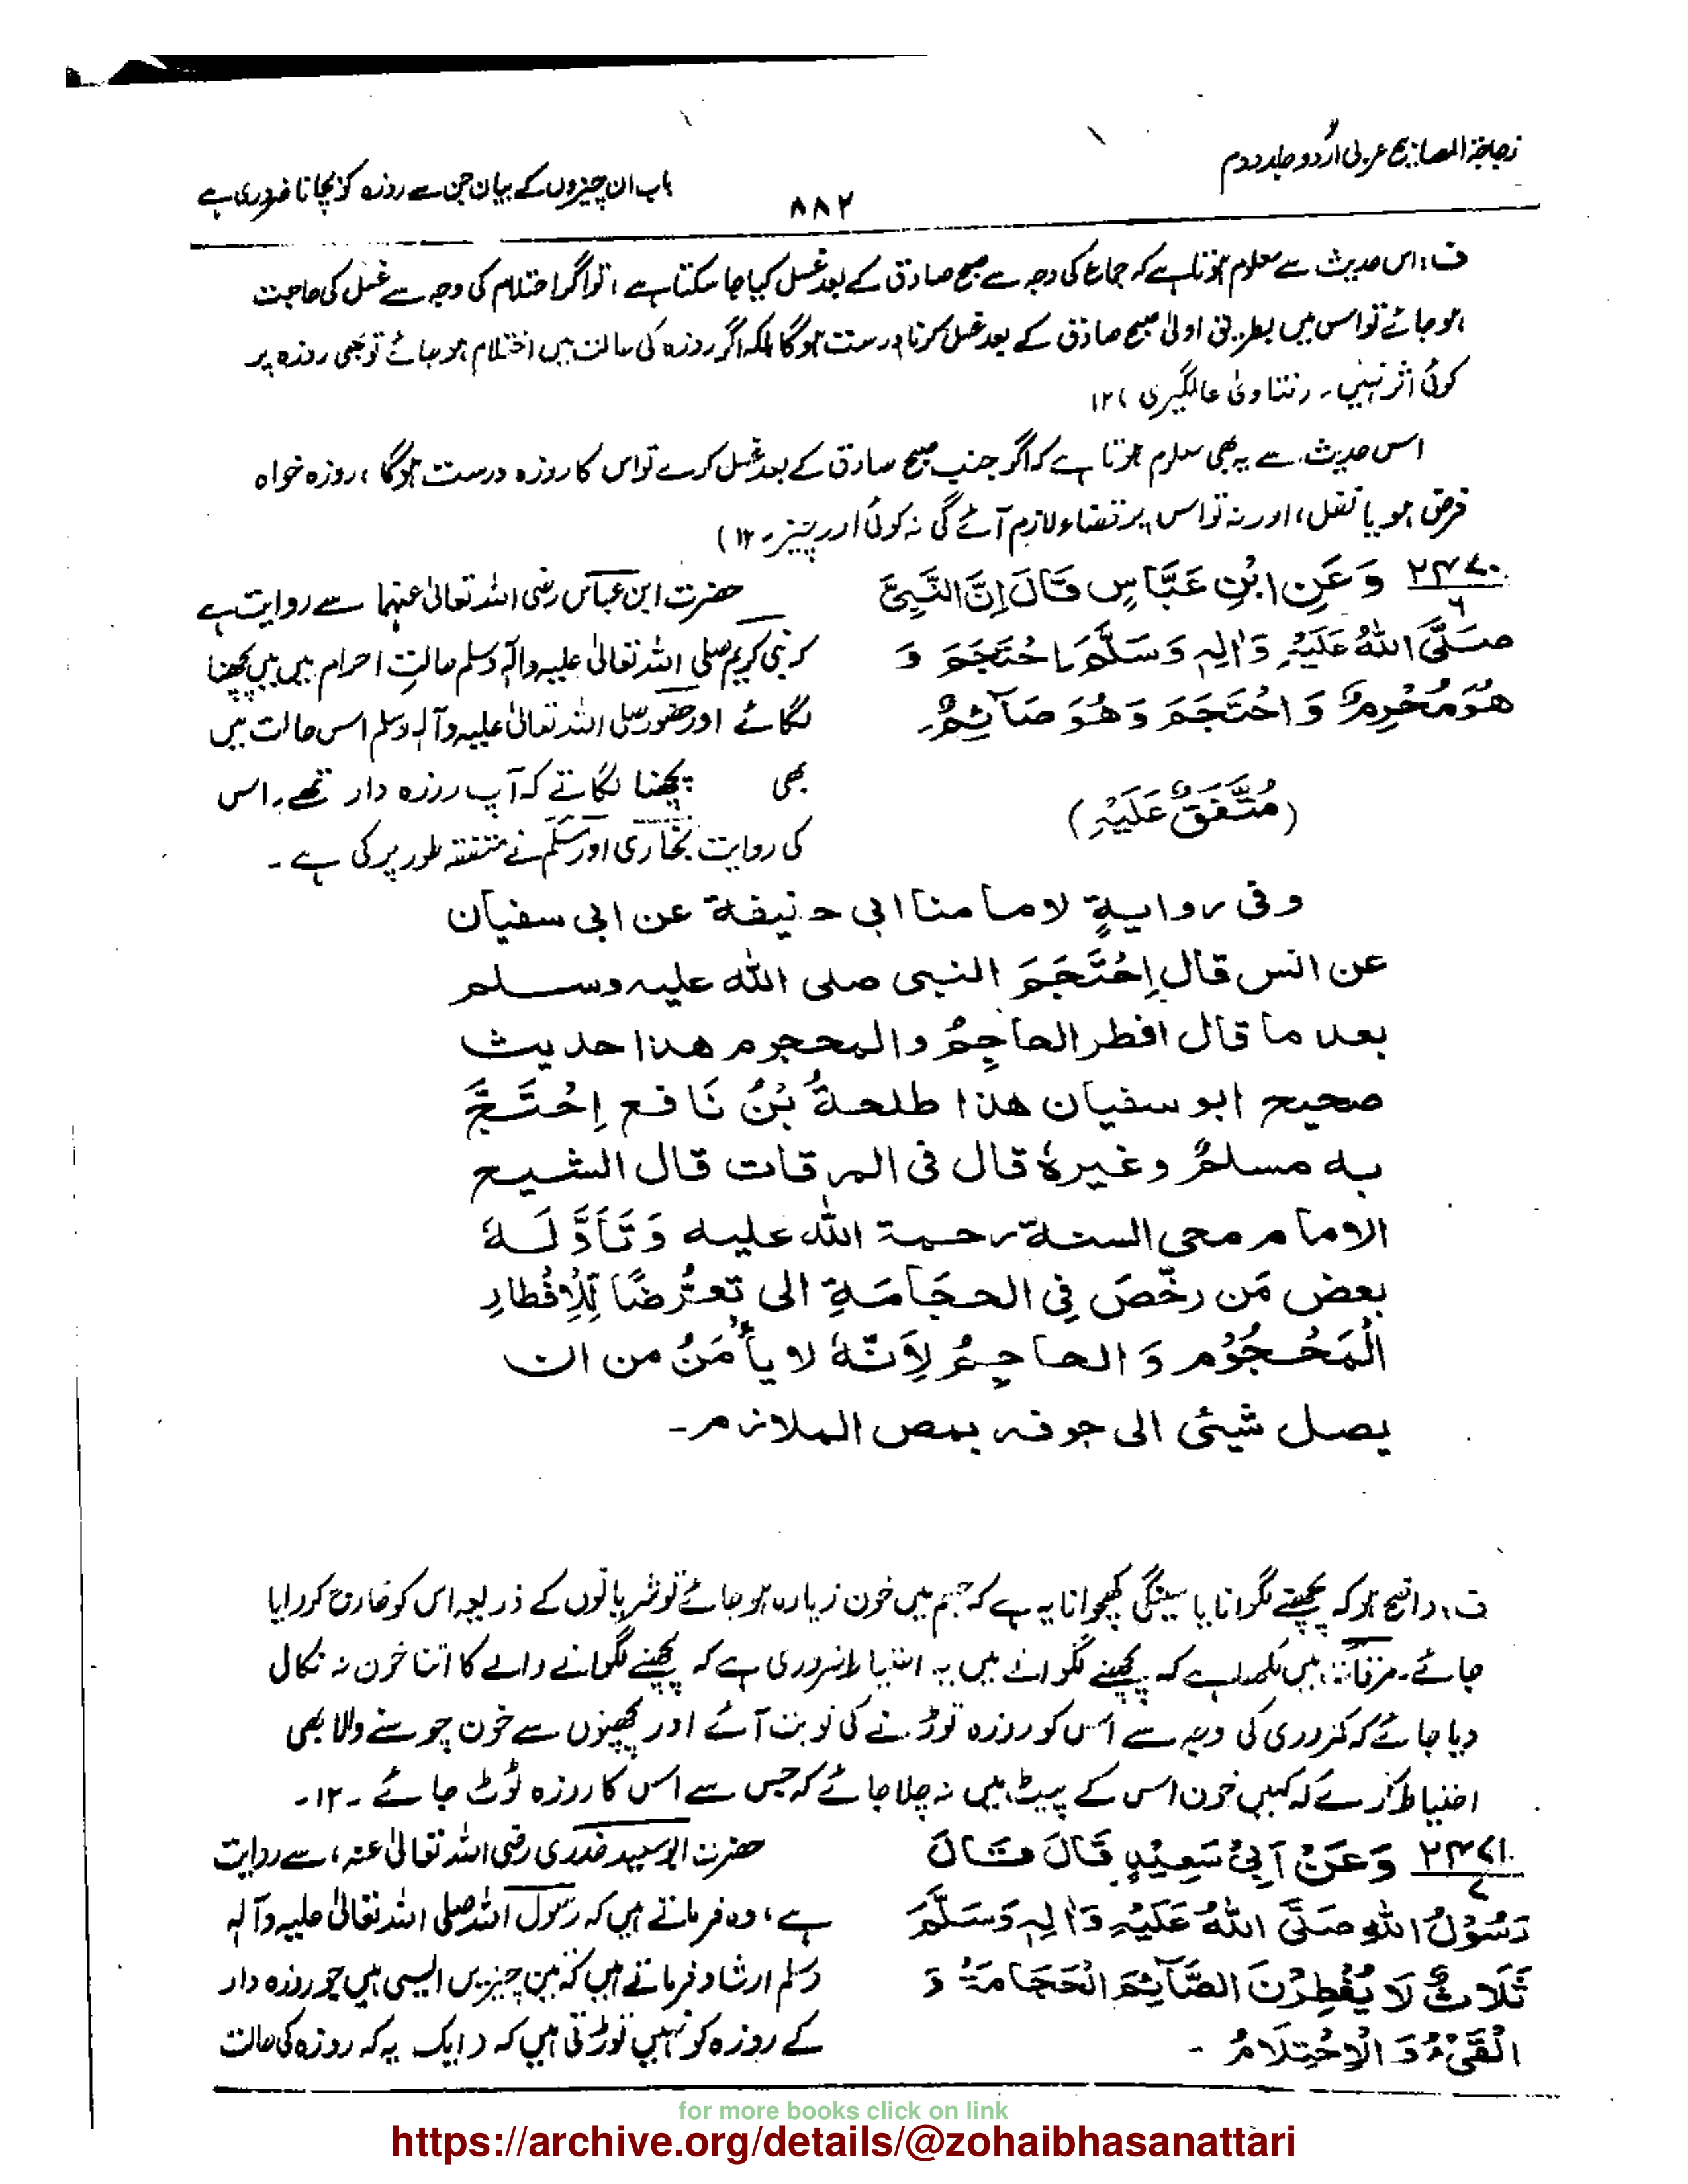 زجاجۃ المصابیح عربی اُردو جلد دوم
۸۸۲
باب ان چیزوں کے بیان جن سے روزہ کو بچانا ضروری ہے
ف: اس حدیث سے معلوم ہوتا ہے کہ جماع کی وجہ سے صبح صادق کے بعد غسل کیا جا سکتا ہے، تو اگر احتلام کی وجہ سے غسل کی حاجت
ہو جائے تو اس میں بطریق اولیٰ صبح صادق کے بعد غسل کرنا درست ہوگا بلکہ اگر روزہ کی حالت میں احتلام ہو جائے تو بھی روزہ پر
کوئی اثر نہیں۔ (فتاویٰ عالمگیری) ۱۲
اس حدیث سے یہ بھی معلوم ہوتا ہے کہ اگر جنب صبح صادق کے بعد غسل کرے تو اس کا روزہ درست ہوگا، روزہ خواہ
فرض ہو یا نفل، اور نہ تو اس پر قضاء لازم آئے گی نہ کوئی اور چیز۔ ۱۲)
۲۴۷۰ وَعَنِ ابْنِ عَبَّاسٍ قَالَ اِنَّ النَّبِیَّ
۶
صَلَّی اللّٰہُ عَلَیْہِ وَاٰلِہٖ وَسَلَّمَ احْتَجَمَ وَ
ھُوَ مُحْرِمٌ وَاحْتَجَمَ وَھُوَ صَآئِمٌ۔
(مُتَّفَقٌ عَلَیْہِ)
حضرت ابن عباس رضی اللہ تعالیٰ عنہما سے روایت ہے
کہ نبی کریم صلی اللہ تعالیٰ علیہ وآلہ وسلم حالتِ احرام میں بھی پچھنا
لگائے اور حضور صلی اللہ تعالیٰ علیہ وآلہ وسلم اس حالت میں
بھی پچھنا لگاتے کہ آپ روزہ دار تھے، اس
کی روایت بخاری اور مسلم نے متفقہ طور پر کی ہے۔
وفی روایۃٍ لامامنا ابی حنیفۃ عن ابی سفیان
عن انس قال اِحْتَجَمَ النبی صلی اللہ علیہ وسلم
بعد ما قال افطر الحاجِمُ والمحجوم ھذا حدیث
صحیح ابو سفیان ھذا طلحۃُ بْنُ نَافع اِحْتَجَّ
بہ مسلمٌ وغیرہٗ قال فی المرقات قال الشیخ
الامام محی السنۃ رحمۃ اللہ علیہ وَتَأَوَّلَہٗ
بعض مَن رخّصَ فِی الحجَامَۃِ الی تعرُّضًا لِلْاِفْطارِ
الْمَحْجُوْم وَ الحاجِمُ لِاَنَّہٗ لا یأْمَنُ من ان
یصل شیئی الی جوفہ بمص الملازم۔
ف: واضح ہو کہ پچھنے لگوانا یا سینگی کھچوانا یہ ہے کہ جسم میں خون زیادہ ہو جائے تو نشریانوں کے ذریعہ اس کو خارج کروایا
جائے۔ مرقات میں لکھا ہے کہ پچھنے لگوانے میں یہ احتیاط ضروری ہے کہ پچھنے لگوانے والے کا اتنا خون نہ نکال
دیا جائے کہ کمزوری کی وجہ سے اُس کو روزہ توڑنے کی نوبت آئے اور پچھنوں سے خون چوسنے والا بھی
احتیاط کرے کہ کہیں خون اس کے پیٹ میں نہ چلا جائے کہ جس سے اس کا روزہ ٹوٹ جائے۔ ۱۲۔
۲۴۷۱ وَعَنْ اَبِیْ سَعِیْدٍ قَالَ قَالَ
۷
رَسُوْلُ اللّٰہِ صَلَّی اللّٰہُ عَلَیْہِ وَاٰلِہٖ وَسَلَّمَ
ثَلَاثٌ لَا یُفْطِرْنَ الصَّآئِمَ الْحَجَامَۃُ وَ
الْقَیْءُ وَ الْاِحْتِلَامُ۔
حضرت ابوسعید خدری رضی اللہ تعالیٰ عنہ، سے روایت
ہے، وہ فرماتے ہیں کہ رسول اللہ صلی اللہ تعالیٰ علیہ وآلہ
وسلم ارشاد فرماتے ہیں کہ تین چیزیں ایسی ہیں جو روزہ دار
کے روزہ کو نہیں توڑتی ہیں کہ (ایک یہ کہ روزہ کی حالت
for more books click on link
https://archive.org/details/@zohaibhasanattari